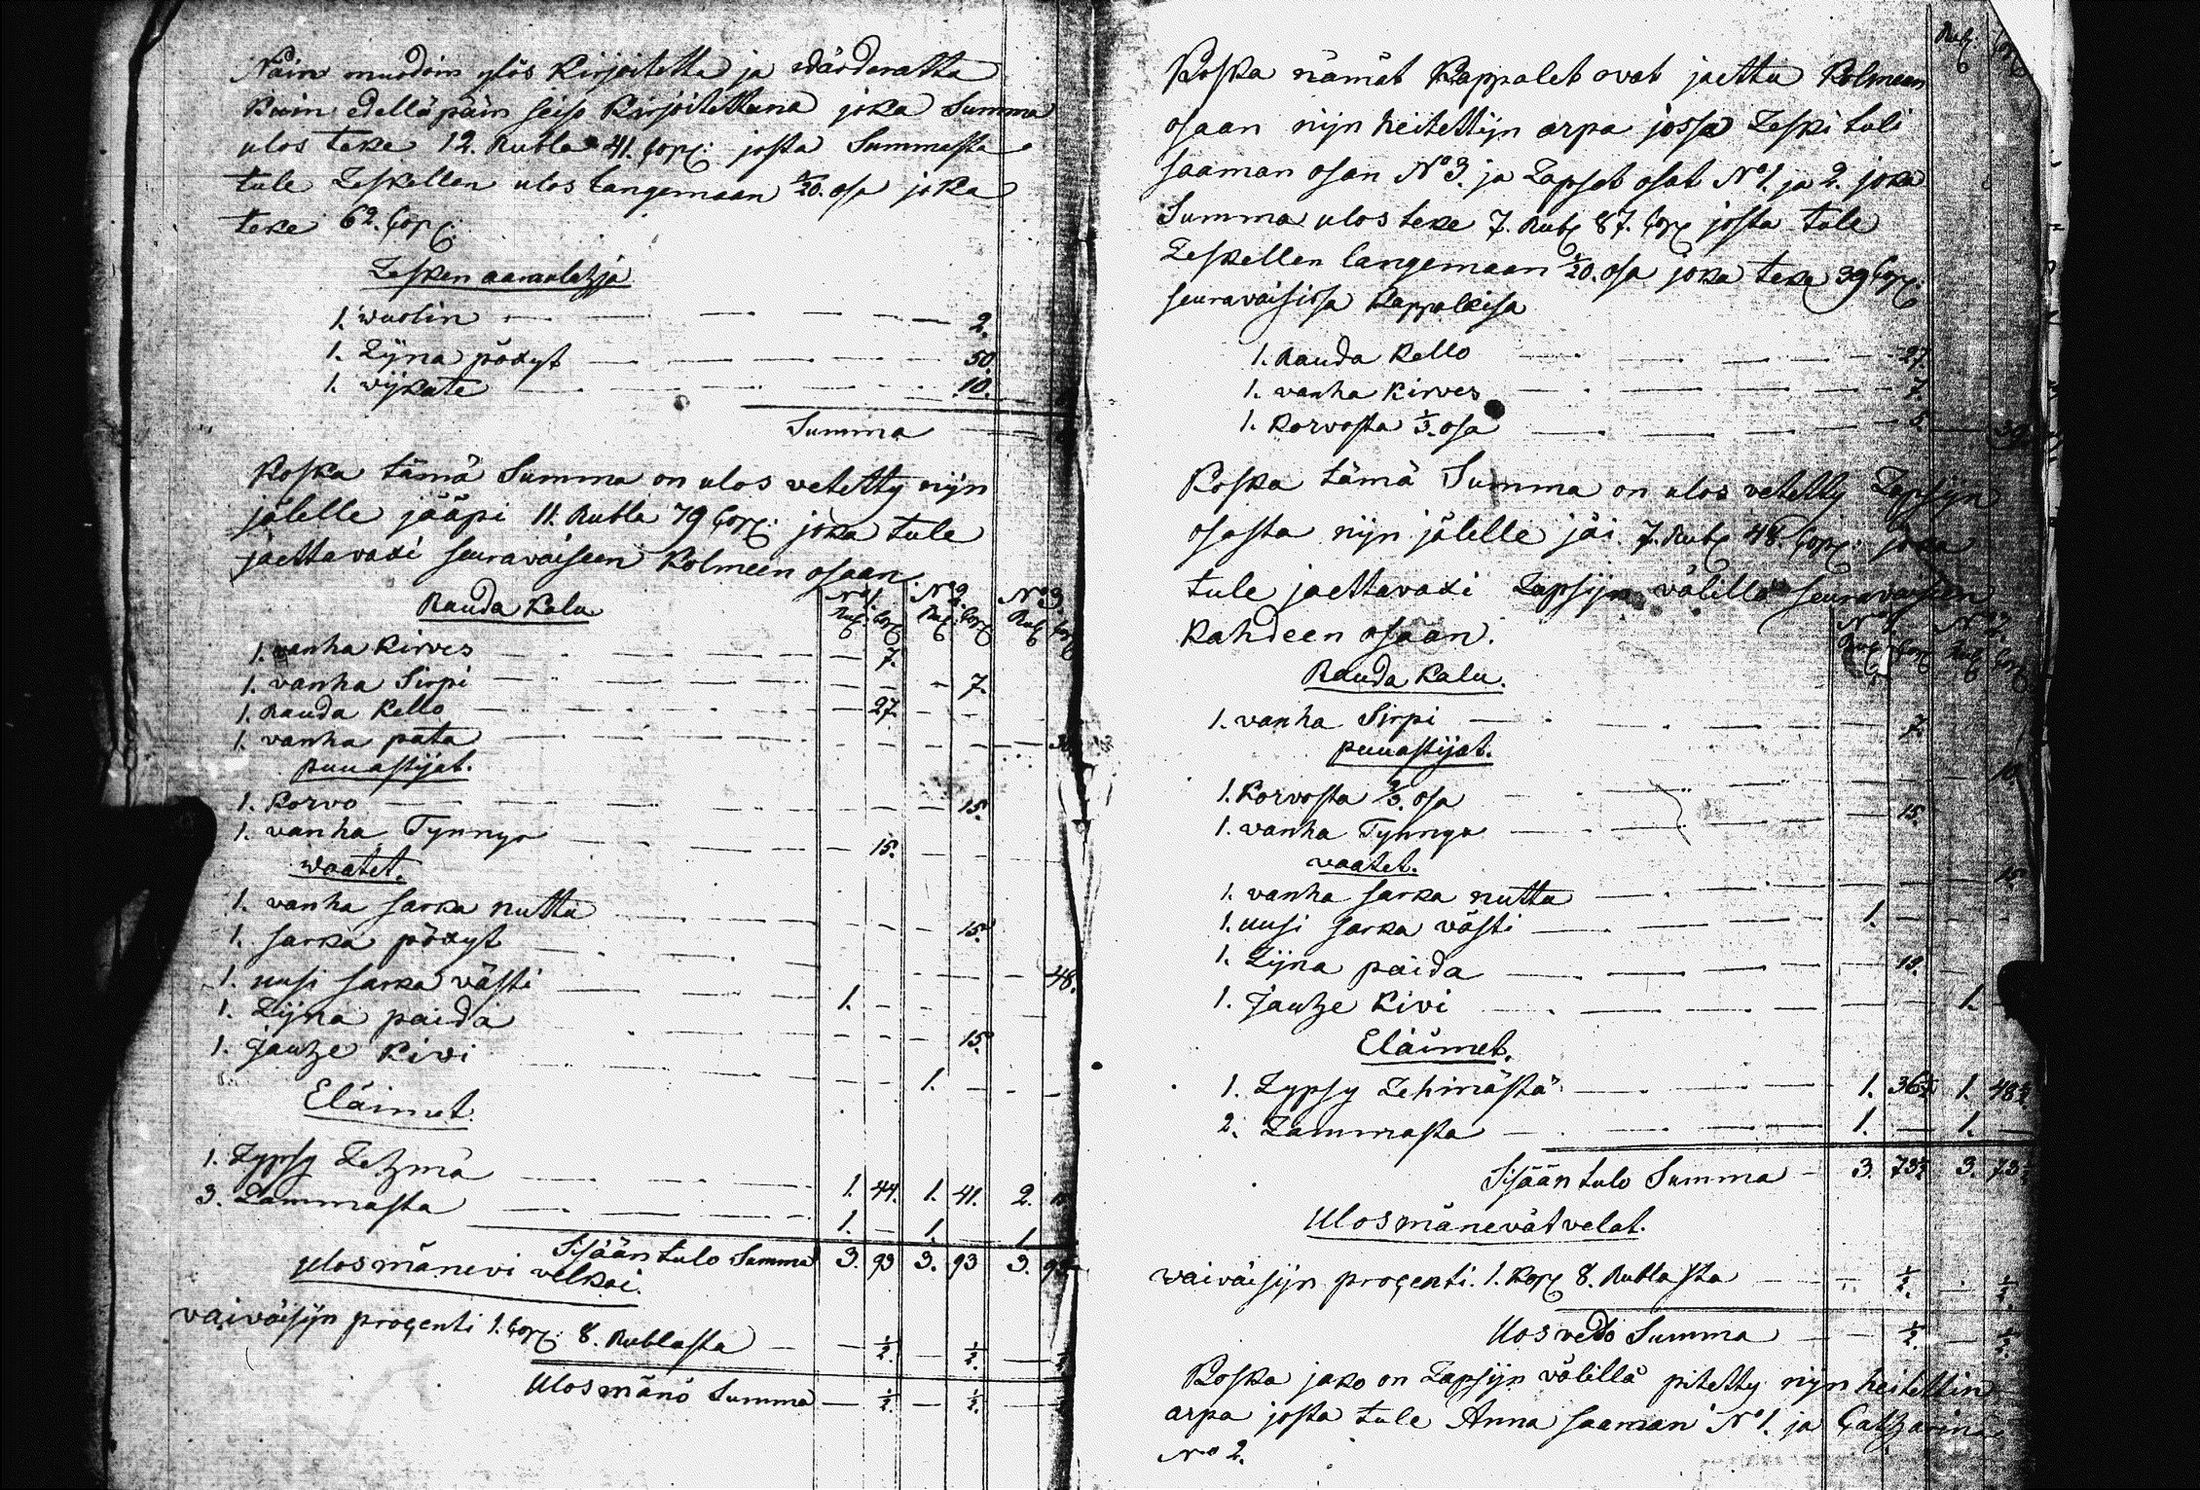 Näin muodoin ylös Kirjoitettu ja wärderattu
kuin edelläpäin seiso Kirjoitettuna joka Summa
ulos teke 12. Rubla 41. Cop: josta Summasta
tule Leskellen ulos langemaan 1/20. osa joka
teke 62. Cop:
Lesken aamulahja
1. wuolin 2.
1. Lijna pöxyt 50.
1. wijkate 10.
Summa
Koska tämä Summa on ulos vetetty nijn
jälelle jääpi 11. Rubla 79 Cop: joka tule
jaettavaxi seuravaiseen Kolmeen osaan.
Rauda Kalu
No 1. No 2. No 3.
Rub: Cop Rub: Cop Rub: Cop
1. vanha Kirves 7.
1. vanha Sirpi 7.
1. Rauda Kello 27
1. vanha pata
puuastijat.
1. Korvo 15.
1. vanha Tynnyr 15.
waatet.
1. vanha sarka nuttu 15.
1. sarka pöxyt 48.
1. uusi sarka västi 1.
1. Lijna paida 15.
1. Jauhe Kivi 1.
Eläimet.
1. Lypsy Lehmä 1. 44. 1. 41. 2.
3. Lammasta 1. 1. 1.
Sisääntulo Summa 3. 93 3. 93 3.
Ulosmänevi velkoi.
vaiväisijn procenti 1. Cop: 8. Rublasta 1/2. 1/2. 1/2
Ulosmänö Summa 1/2. 1/2.
Rub: Cop
Koska nämät Kappalet ovat jaettu Kolmeen
osaan nijn heitettijn arpa jossa Leski tuli
saaman osan No 3. ja Lapset osat No 1. ja 2. joka
Summa ulos teke 7. Rub 87. Cop josta tule
Leskellen langemaan 1/20. osa joka teke 39 Cop.
seuravaisissa Kappaleisa
1. Rauda Kello 27.
1. vanha Kirves 7.
1. Korvosta 1/3. osa 5. 39.
Koska tämä Summa on ulos vetetty Lapsijn
osasta nijn jälelle jäi 7. Rub 48. Cop: joka
tule jaettavaxi Lapsijn välillä seuravaiseen
Kahdeen osaan.
No 1. No 2.
Rub Cop Rub Cop
Rauda Kalu.
1. vanha Sirpi 7.
puuastijat.
1. Korvosta 2/3. osa 10.
1. vanha Tynnyr 15.
vaatet.
1. vanha sarka nuttu 15.
1. uusi sarka västi 1.
1. Lijna paida 15.
1. Jauhe Kivi 1.
Eläimet.
1. Lypsy Lehmästä 1. 36 1/2 1. 48 1/2
2. Lammasta 1. 1.
Sisääntulo Summa 3. 73 1/2 3. 73 1/2
Ulosmänevät velat.
waiväisijn procenti. 1. Kop 8. Rublasta 1/2. 1/2.
Ulosvedo Summa 1/2. 1/2.
Koska jako on Lapsijn välillä pitetty nijn heitettin
arpa josta tule Anna saaman No 1. ja Catharina
No 2.